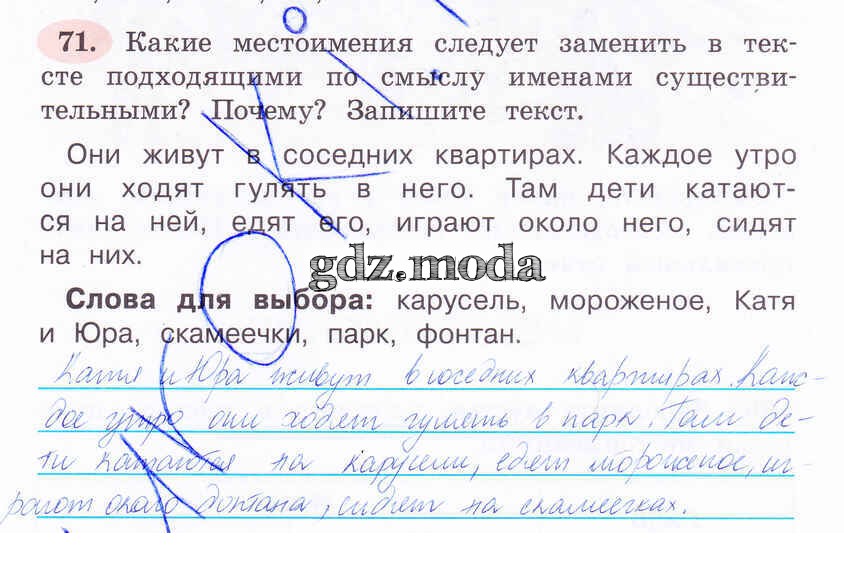 71. Какие местоимения следует заменить в тек-
сте подходящими по смыслу именами существи-
тельными? Почему? Запишите текст.
Они живут в соседних квартирах. Каждое утро
они ходят гулять в него. Там дети катают-
ся на ней, едят его, играют около него, сидят
на них.
gdz.moda
Слова для выбора: карусель, мороженое, Катя
и Юра, скамеечки, парк, фонтан.
Катя и Юра живут в соседних квартирах. Каж-
дое утро они ходят гулять в парк. Там де-
ти катаются на карусели, едят мороженое, иг-
рают около фонтана, сидят на скамеечках.